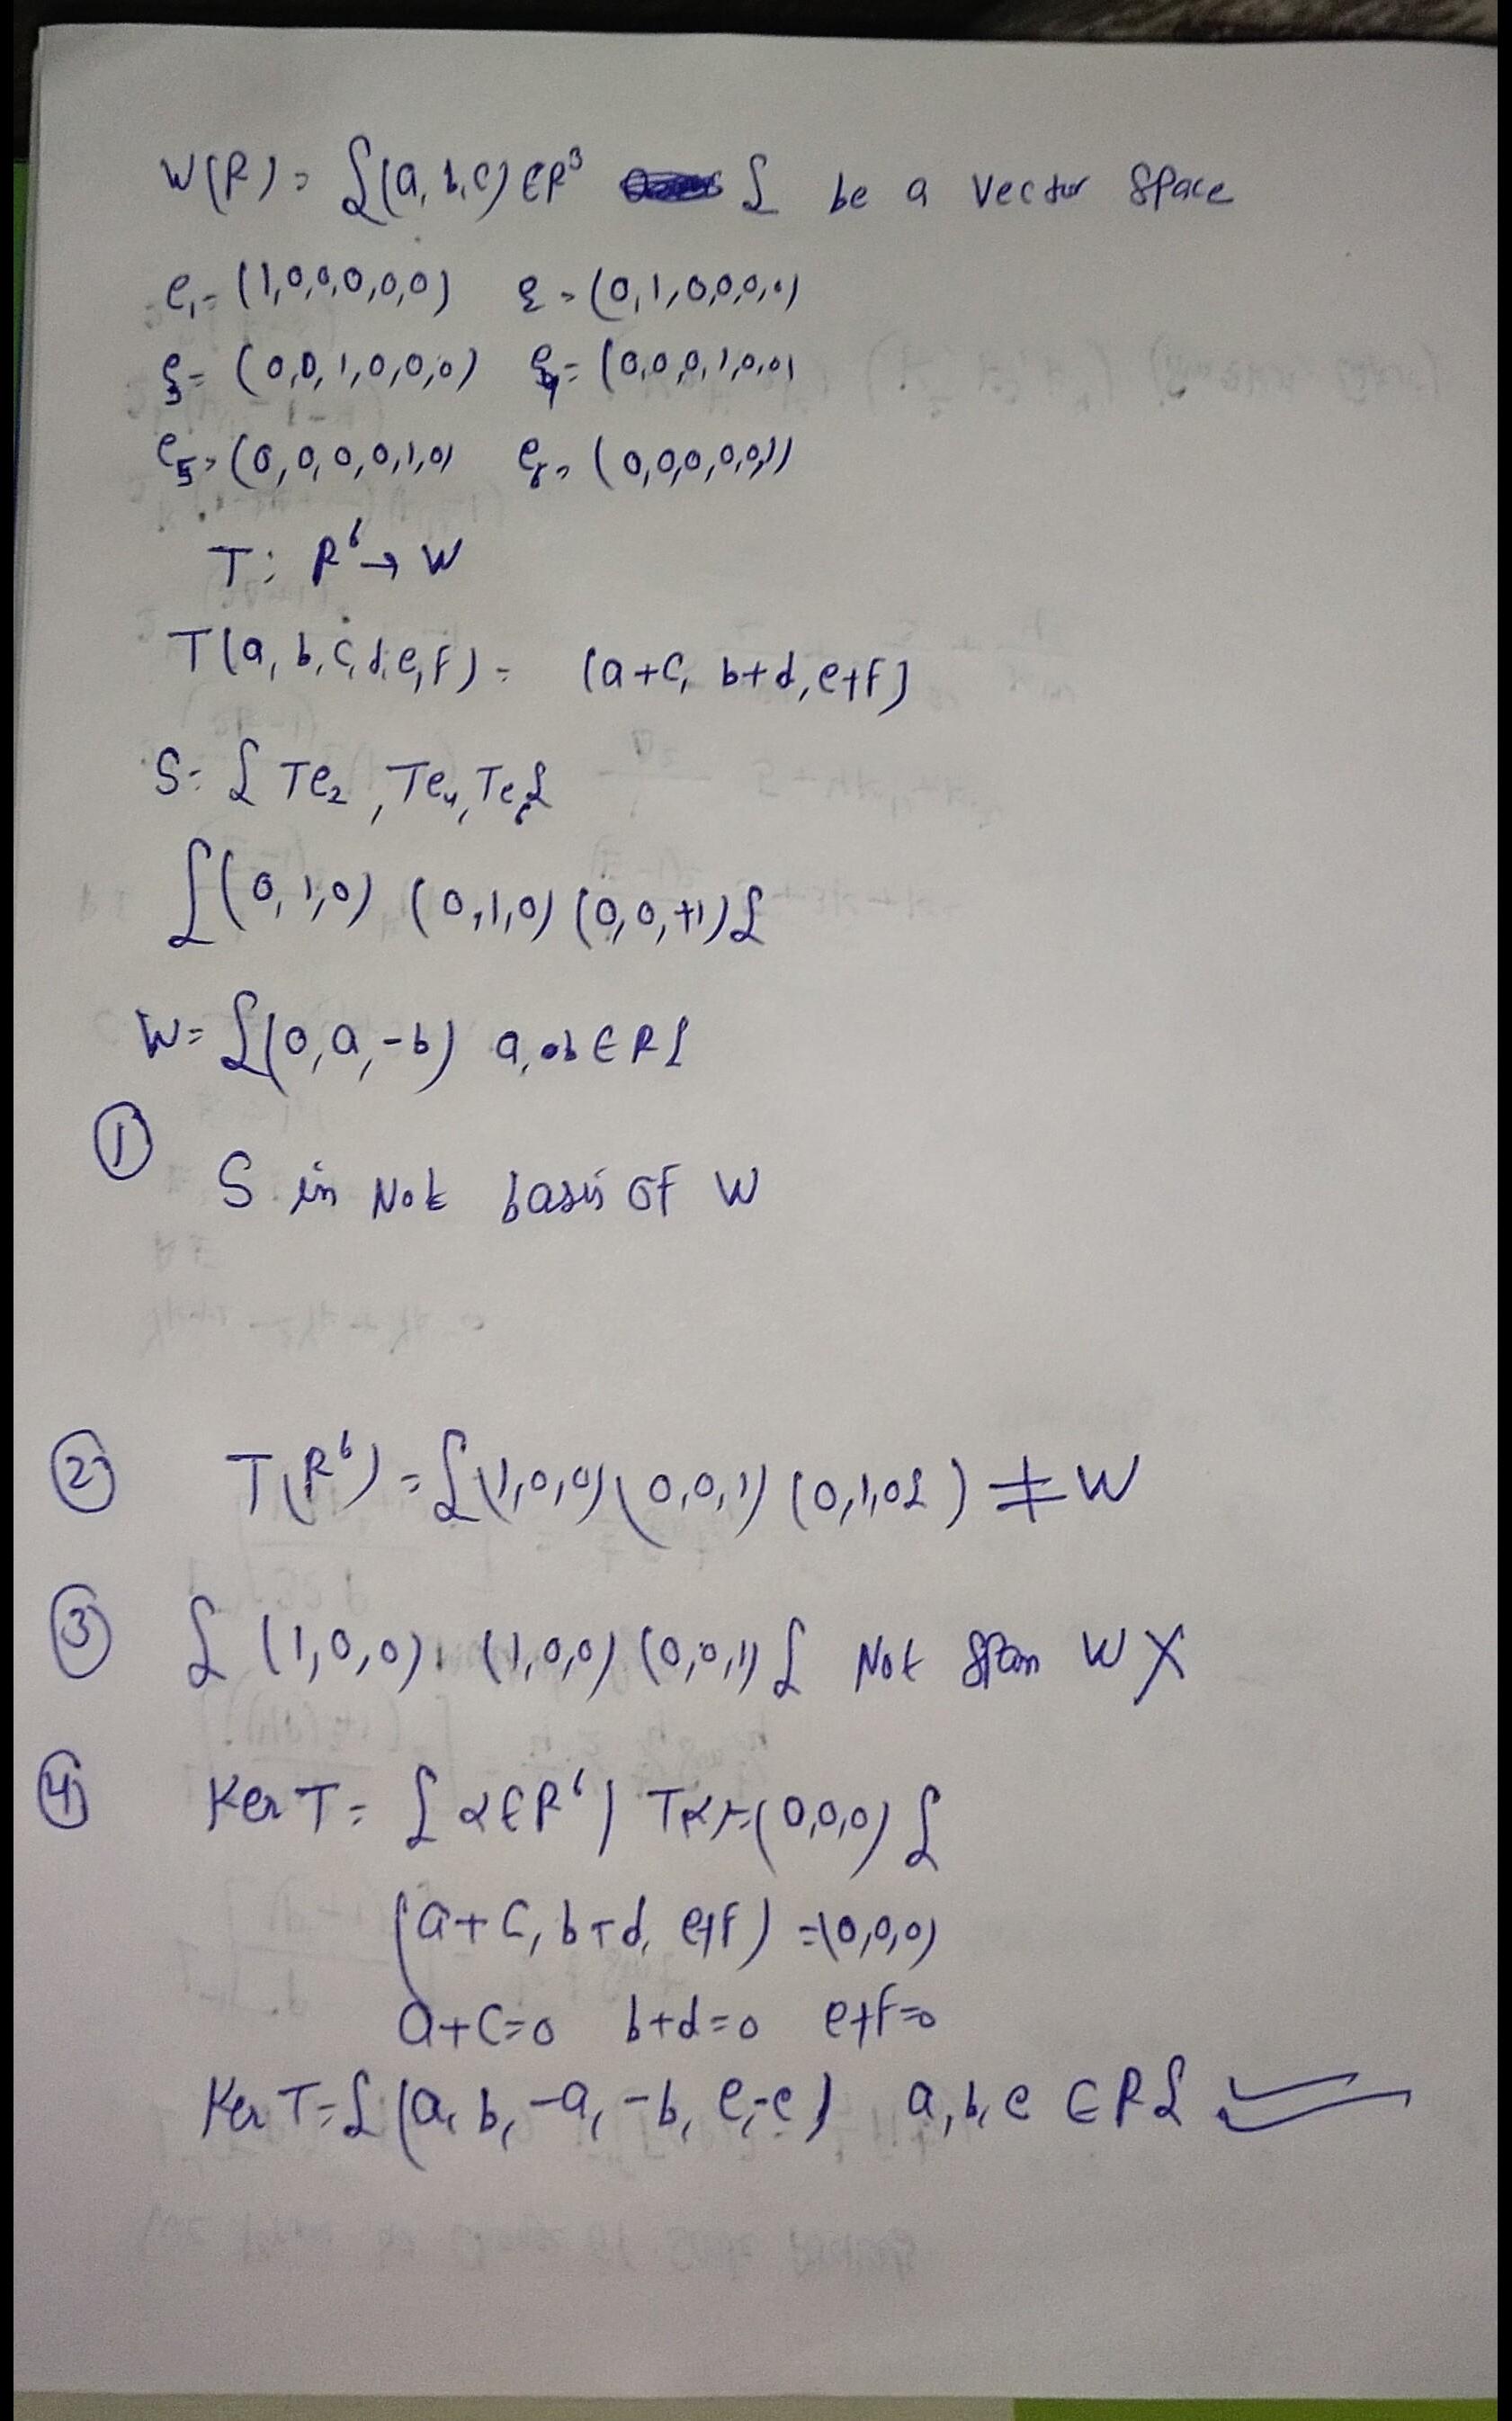 W(R) = {(a, b, c) ∈ R³ } be a vector space
e₁ = (1,0,0,0,0,0) e₂ = (0,1,0,0,0,0)
e₃ = (0,0,1,0,0,0) e₄ = (0,0,0,1,0,0)
e₅ = (0,0,0,0,1,0) e₆ = (0,0,0,0,0,1)
T: R⁶ → W
T(a, b, c, d, e, f) = (a+c, b+d, e+f)
S = { Te₂, Te₄, Te₆ }
{(0,1,0) (0,1,0) (0,0,+1)}
W = {(0, a, -b) a, b ∈ R}
① S is Not basis of W
② T(R⁶) = {(1,0,0) (0,0,1) (0,1,0}) ≠ W
③ { (1,0,0), (1,0,0) (0,0,1) } Not span W X
④ Ker T = { α ∈ R⁶ | Tα = (0,0,0) }
(a+c, b+d, e+f) = (0,0,0)
a+c=0 b+d=0 e+f=0
Ker T = {(a, b, -a, -b, e, -e) a, b, e ∈ R}